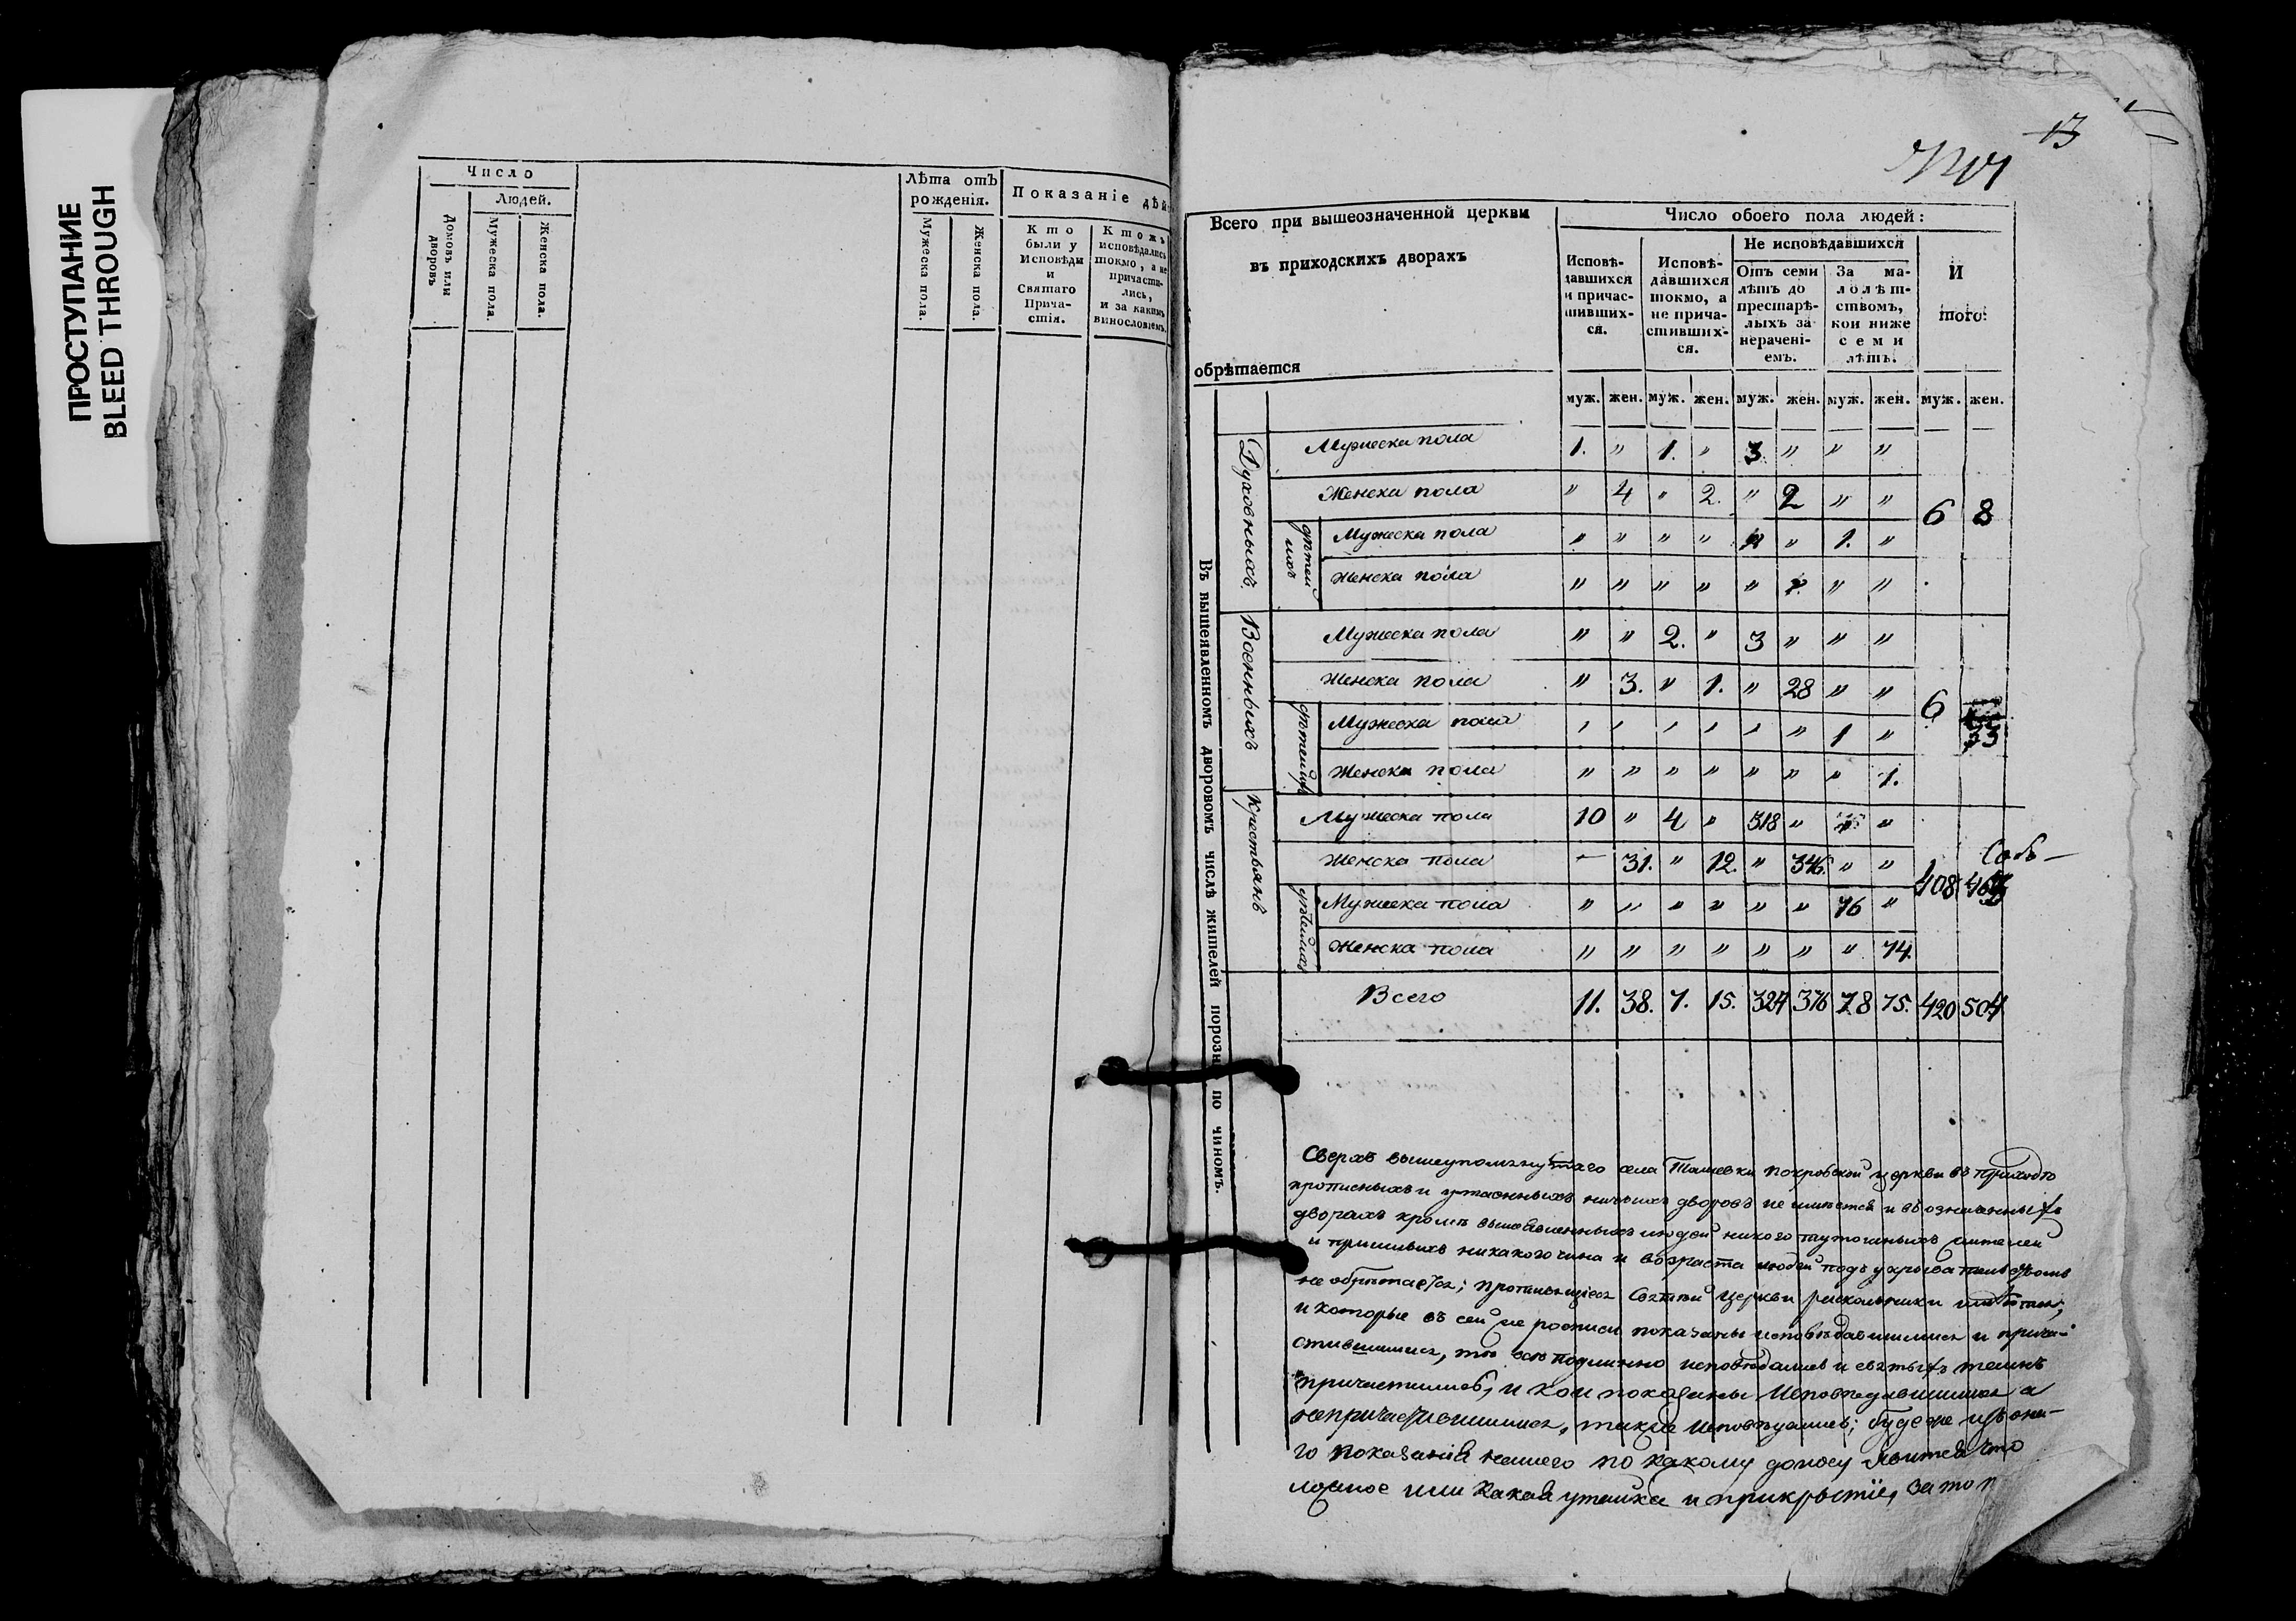 ПРОСТУПАНИЕ
BLEED THROUGH
Число
Людей.
Домовъ или дворовъ
Мужеска пола.
Женска пола.
Лѣта отъ
рожденія.
Мужеска пола.
Женска пола.
Показаніе дѣй
Кто
были у
Исповѣди
и
Святаго
Прича-
стія.
Ктожъ
исповѣдались
токмо, а не
причасти-
лись,
и за какимъ
винословіемъ.
13
Всего при вышеозначенной церкви
въ приходскихъ дворахъ
обрѣтается
Число обоего пола людей:
Исповѣ-
давшихся
и причас-
тивших-
ся.
Исповѣ-
давшихся
токмо, а
не прича-
стивших-
ся.
Не исповѣдавшихся
Отъ семи
лѣтъ до
престарѣ-
лыхъ за
нерачені-
емъ.
За ма-
лолѣт-
ствомъ,
кои ниже
семи
лѣтъ.
И
того:
муж. жен. муж. жен. муж. жен. муж. жен. муж. жен.
Въ вышеявленномъ дворовомъ числѣ жителей порознь по чиномъ.
Духовныхъ
Мужеска пола 1. " 1. " 3 " " "
Женска пола " 4 " 2. " 2 " " 6 8
дѣтей ихъ
Мужеска пола " " " " " " 1. "
Женска пола " " " " " " "
Военныхъ
Мужеска пола " " 2. " 3 " " "
Женска пола " 3. " 1. " 28 " " 6 33
дѣтей ихъ
Мужеска пола " " " " " " 1 "
Женска пола " " " " " " " 1.
Крестьянъ
Мужеска пола 10 " 4 " 318 " "
Женска пола " 31. " 12. " 346. " " 408
дѣтей ихъ
Мужеска пола " " " " " " 76 "
Женска пола " " " " " " " 74.
Всего 11. 38. 7. 15. 324 376 78 75. 420 504
Сверхъ вышеупомянутаго села Покровской церкви въ приходѣ
прописныхъ и утаенныхъ ничьихъ дворовъ не имѣется и въ означенныхъ
дворахъ кромѣ вышеявленныхъ людей никого тутошныхъ жителей
и пришлыхъ никакого чина и возраста людей подъ укрывательствомъ
не обрѣтается; противящіеся Святой церкви раскольники
и которые въ сей же росписи показаны исповѣдавшимися и прича-
стившимися, тѣ всѣ подлинно исповѣдались и святыхъ таинъ
причастились, и кои показаны Исповѣдавшимися а
непричастившимися, такжe исповѣдались; буде же изъ она-
го показанія нашего по какому доносу явится что
ложное или какая утайка и прикрытіе, за то